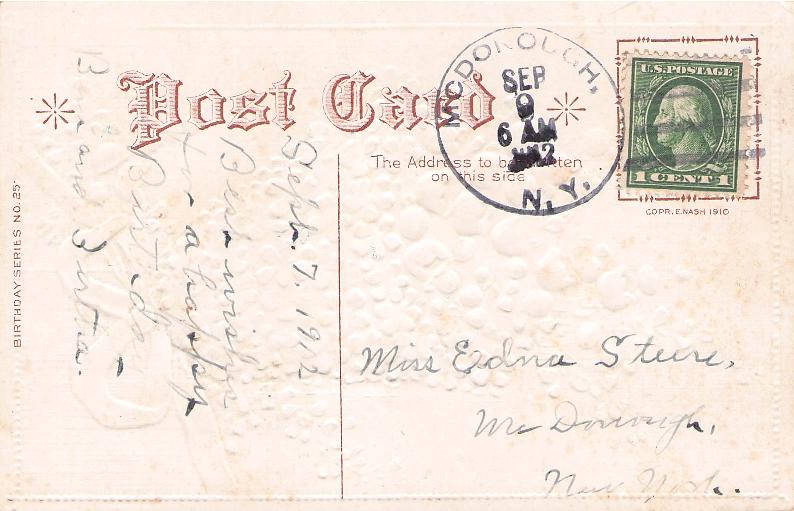 Post Card
McDONOUGH,
SEP
9
6 AM
N.Y.
U.S. POSTAGE
1 CENT 1
The Address to be written
on this side
COPR. E. NASH 1910
BIRTHDAY SERIES NO. 25
Sept. 7, 1912
Best wishes
for a happy
Birthday
and
Miss Edna Steere,
McDonough,
New York.